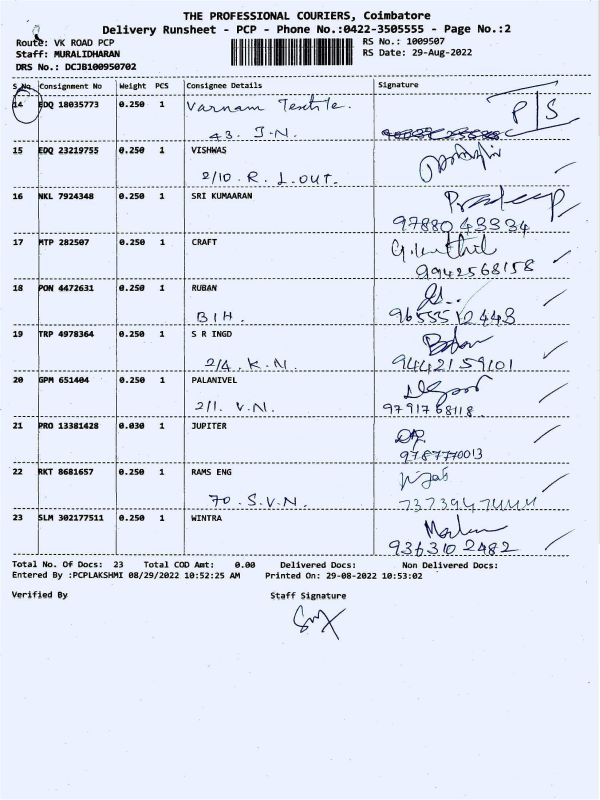 THE PROFESSIONAL COURIERS, Coimbatore
Delivery Runsheet - PCP - Phone No.:0422-3505555 - Page No.:2
Route: VK ROAD PCP RS No.: 1009507
Staff: MURALIDHARAN RS Date: 29-Aug-2022
DRS No.: DCJB100950702
S No Consignment No Weight PCS Consignee Details Signature
14 EDQ 18035773 0.250 1 Varnam Textile. P/S
43. J.N.
15 EDQ 23219755 0.250 1 VISHWAS
2/10. R. L.OUT.
16 NKL 7924348 0.250 1 SRI KUMAARAN Pradeep
97880 43334
17 MTP 282507 0.250 1 CRAFT
9942568158
18 PON 4472631 0.250 1 RUBAN
BIH. 9655512443
19 TRP 4978364 0.250 1 S R INGD
2/4. K.N. 9442159101
20 GPM 651404 0.250 1 PALANIVEL
2/1. V.N. 9791768118
21 PRO 13381428 0.030 1 JUPITER
9787770013
22 RKT 8681657 0.250 1 RAMS ENG
70. S.V.N. 7373947444
23 SLM 302177511 0.250 1 WINTRA
9363102482
Total No. Of Docs: 23 Total COD Amt: 0.00 Delivered Docs: Non Delivered Docs:
Entered By :PCPLAKSHMI 08/29/2022 10:52:25 AM Printed On: 29-08-2022 10:53:02
Verified By Staff Signature